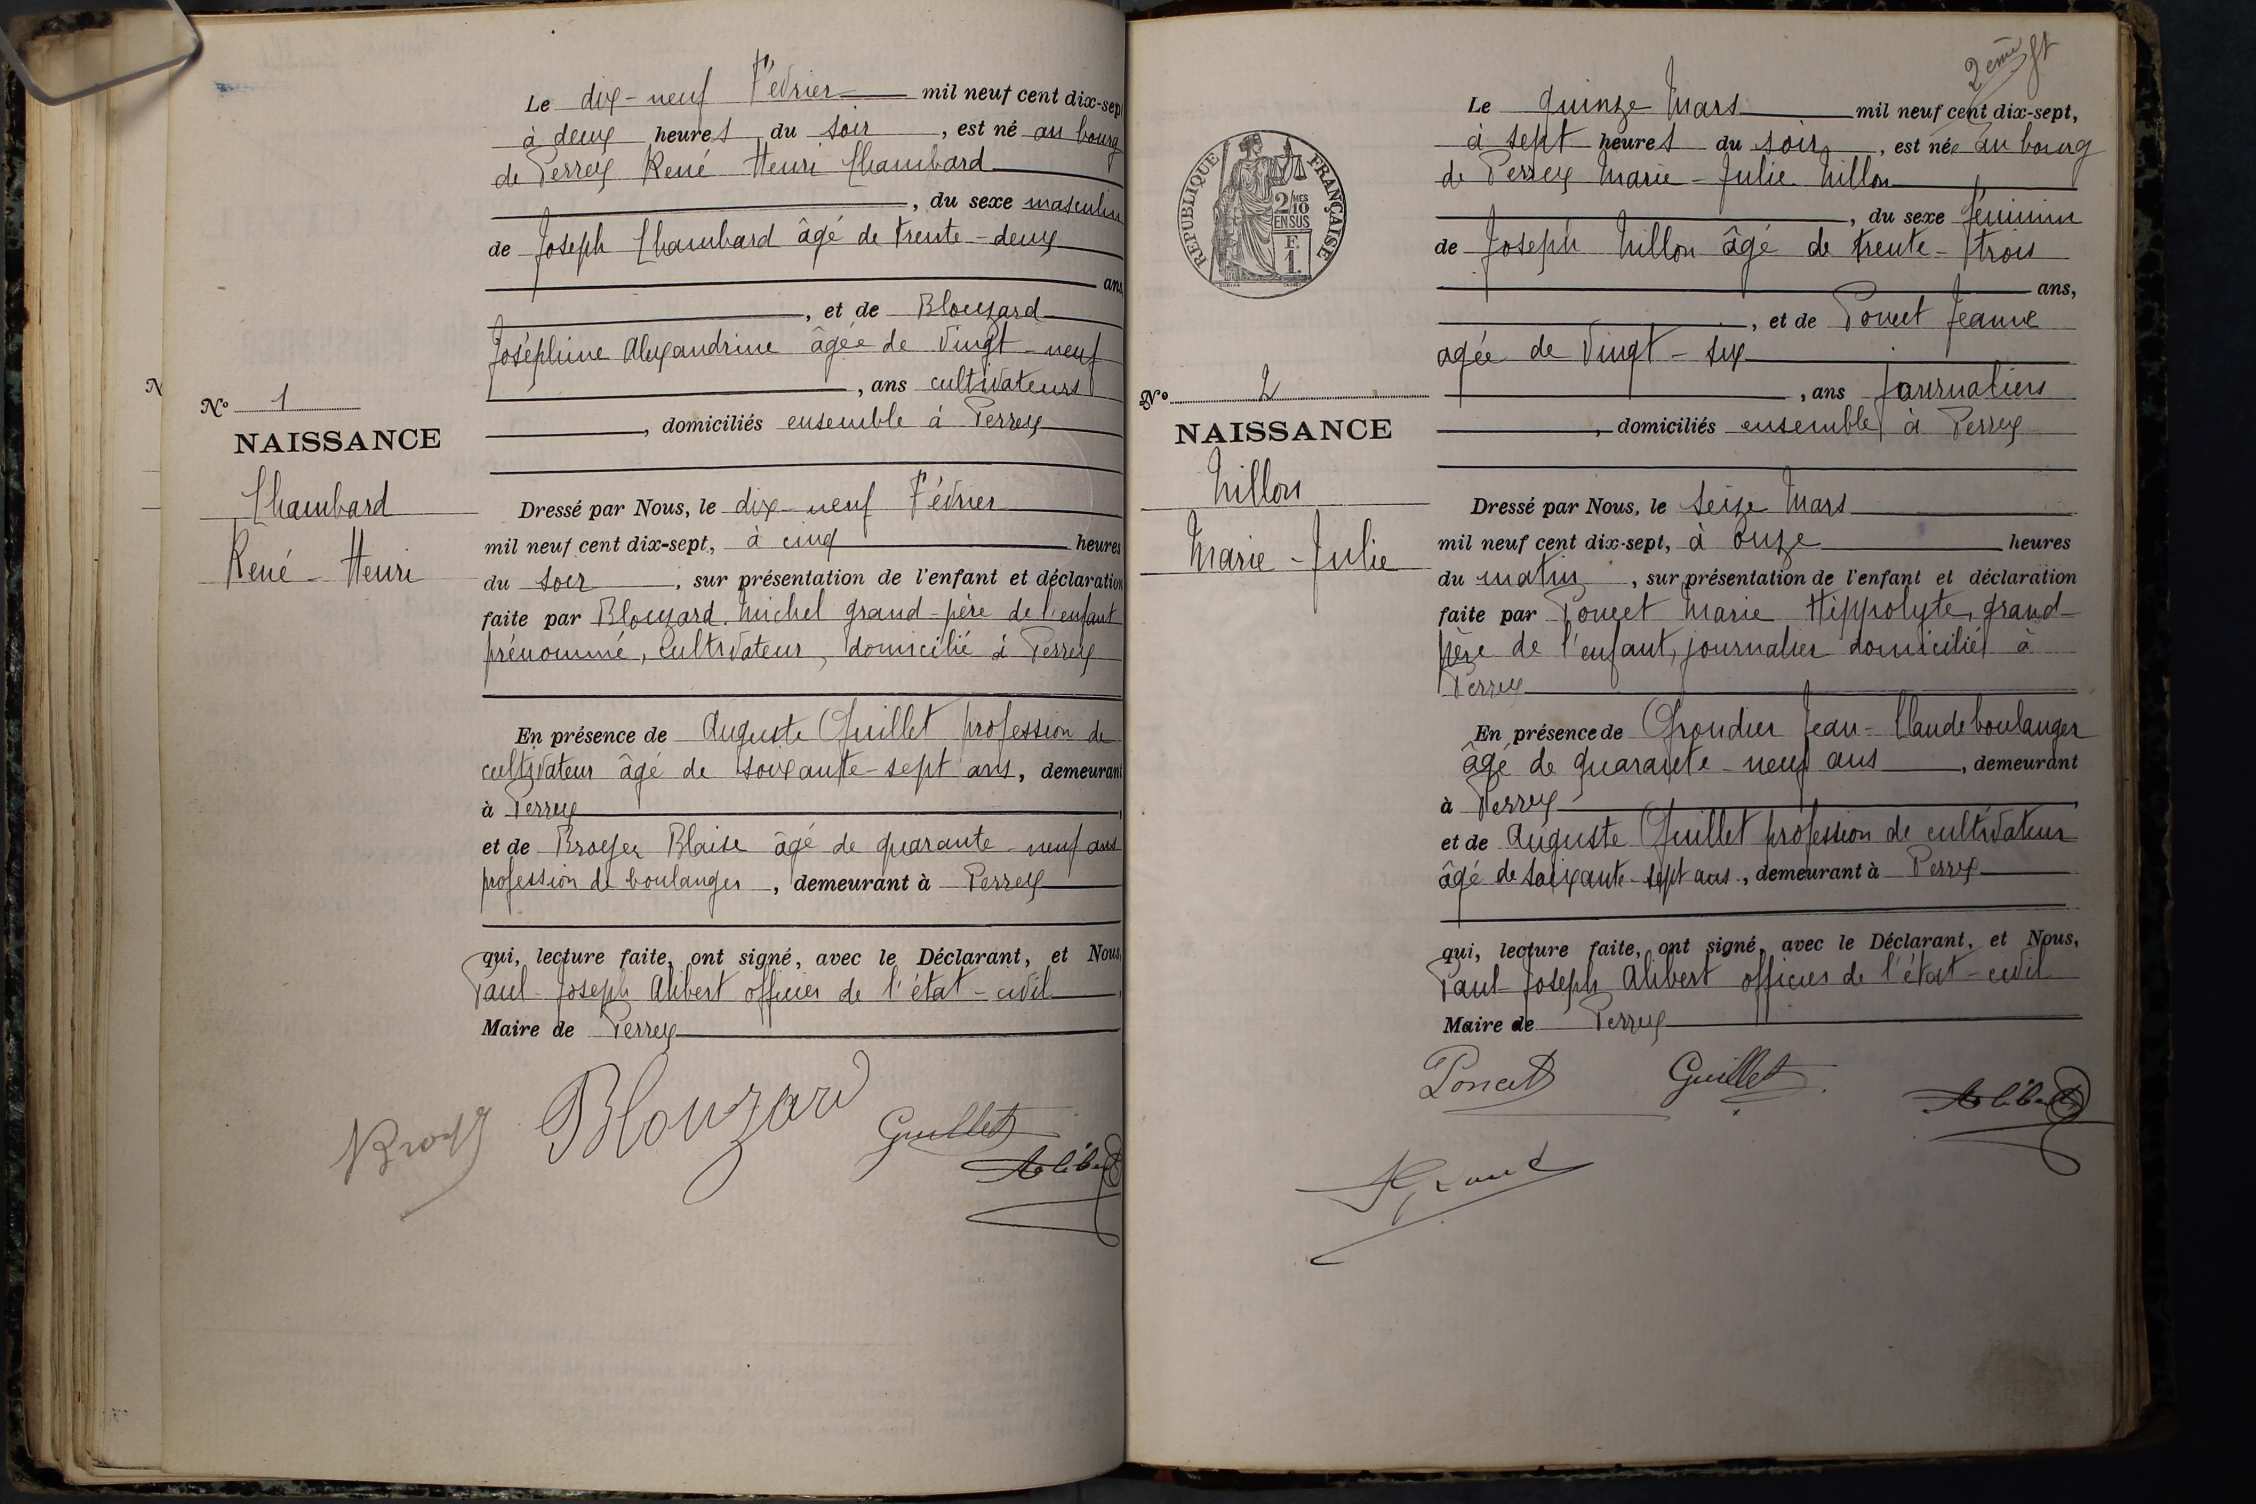 Le dix-neuf Février mil neuf cent dix-sept
à deux heures du soir, est né au bourg
de Perrex René Henri Chambard
, du sexe masculin
de Joseph Chambard âgé de trente-deux
ans,
, et de Blouzard
Joséphine Alexandrine âgée de vingt-neuf
, ans cultivateurs
, domiciliés ensemble à Perrex
N
Nº 1
NAISSANCE
Chambard
René-Henri
Dressé par Nous, le dix-neuf Février
mil neuf cent dix-sept, à cinq heures
du soir, sur présentation de l'enfant et déclaration
faite par Blouzard Michel grand-père de l'enfant
prénommé, cultivateur, domicilié à Perrex
En présence de Auguste Guillet profession de
cultivateur âgé de soixante-sept ans, demeurant
à Perrex,
et de Broyer Blaise âgé de quarante-neuf ans
profession de boulanger, demeurant à Perrex
qui, lecture faite, ont signé, avec le Déclarant, et Nous,
Paul-Joseph Alibert officier de l'état-civil,
Maire de Perrex
Broyer Blouzard Guillet
Alibert
2ème ft
Le quinze Mars mil neuf cent dix-sept,
à sept heures du soir, est née au bourg
de Perrex Marie-Julie Millon
, du sexe féminin
de Joseph Millon âgé de trente-trois
ans,
, et de Poncet Jeanne
agée de vingt-six
, ans journaliers
, domiciliés ensemble à Perrex
REPUBLIQUE FRANÇAISE
2/10MES
EN SUS
F.
1.
Nº 2
NAISSANCE
Millon
Marie-Julie
Dressé par Nous, le seize Mars
mil neuf cent dix-sept, à onze heures
du matin, sur présentation de l'enfant et déclaration
faite par Poncet Marie Hippolyte, grand-
père de l'enfant, journalier domicilié à
Perrex
En présence de Grondier Jean-Claude boulanger
âgé de quarante-neuf ans, demeurant
à Perrex
et de Auguste Guillet profession de cultivateur
âgé de soixante-sept ans, demeurant à Perrex
qui, lecture faite, ont signé, avec le Déclarant, et Nous,
Paul-Joseph Alibert officier de l'état-civil
Maire de Perrex
Poncet Guillet Alibert